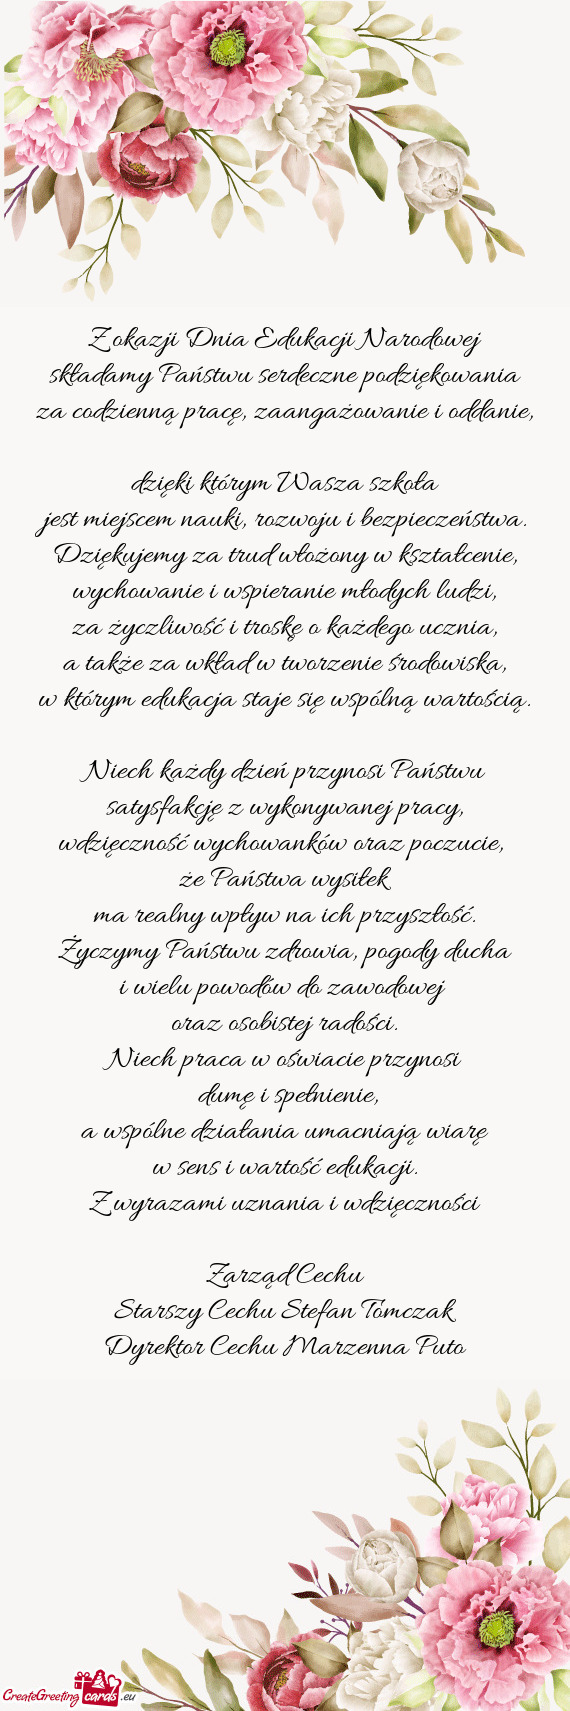 Z okazji Dnia Edukacji Narodowej
składamy Państwu serdeczne podziękowania
za codzienną pracę, zaangażowanie i oddanie,
dzięki którym Wasza szkoła
jest miejscem nauki, rozwoju i bezpieczeństwa.
Dziękujemy za trud włożony w kształcenie,
wychowanie i wspieranie młodych ludzi,
za życzliwość i troskę o każdego ucznia,
a także za wkład w tworzenie środowiska,
w którym edukacja staje się wspólną wartością.
Niech każdy dzień przynosi Państwu
satysfakcję z wykonywanej pracy,
wdzięczność wychowanków oraz poczucie,
że Państwa wysiłek
ma realny wpływ na ich przyszłość.
Życzymy Państwu zdrowia, pogody ducha
i wielu powodów do zawodowej
oraz osobistej radości.
Niech praca w oświacie przynosi
dumę i spełnienie,
a wspólne działania umacniają wiarę
w sens i wartość edukacji.
Z wyrazami uznania i wdzięczności
Zarząd Cechu
Starszy Cechu Stefan Tomczak
Dyrektor Cechu Marzenna Puto
CreateGreeting cards .eu